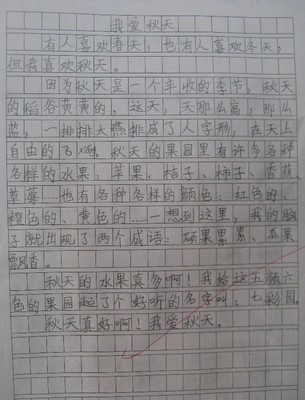 我爱秋天
有人喜欢春天，也有人喜欢冬天，
但我喜欢秋天。
因为秋天是一个丰收的季节，秋天
的稻谷黄黄的，这天，天那么高，那么
蓝，一排排大雁排成了人字形，在天上
自由的飞翔。秋天的果园里有许多各种
各样的水果：苹果、桔子、柿子、香蕉、
草莓……也有各种各样的颜色：红色的、
橙色的、黄色的……一想到这里，我的脑
子就出现了两个成语：硕果累累、瓜果
飘香。
秋天的水果真多啊！我给这五颜六
色的果园起了个好听的名字叫：七彩园。
秋天真好啊！我爱秋天。